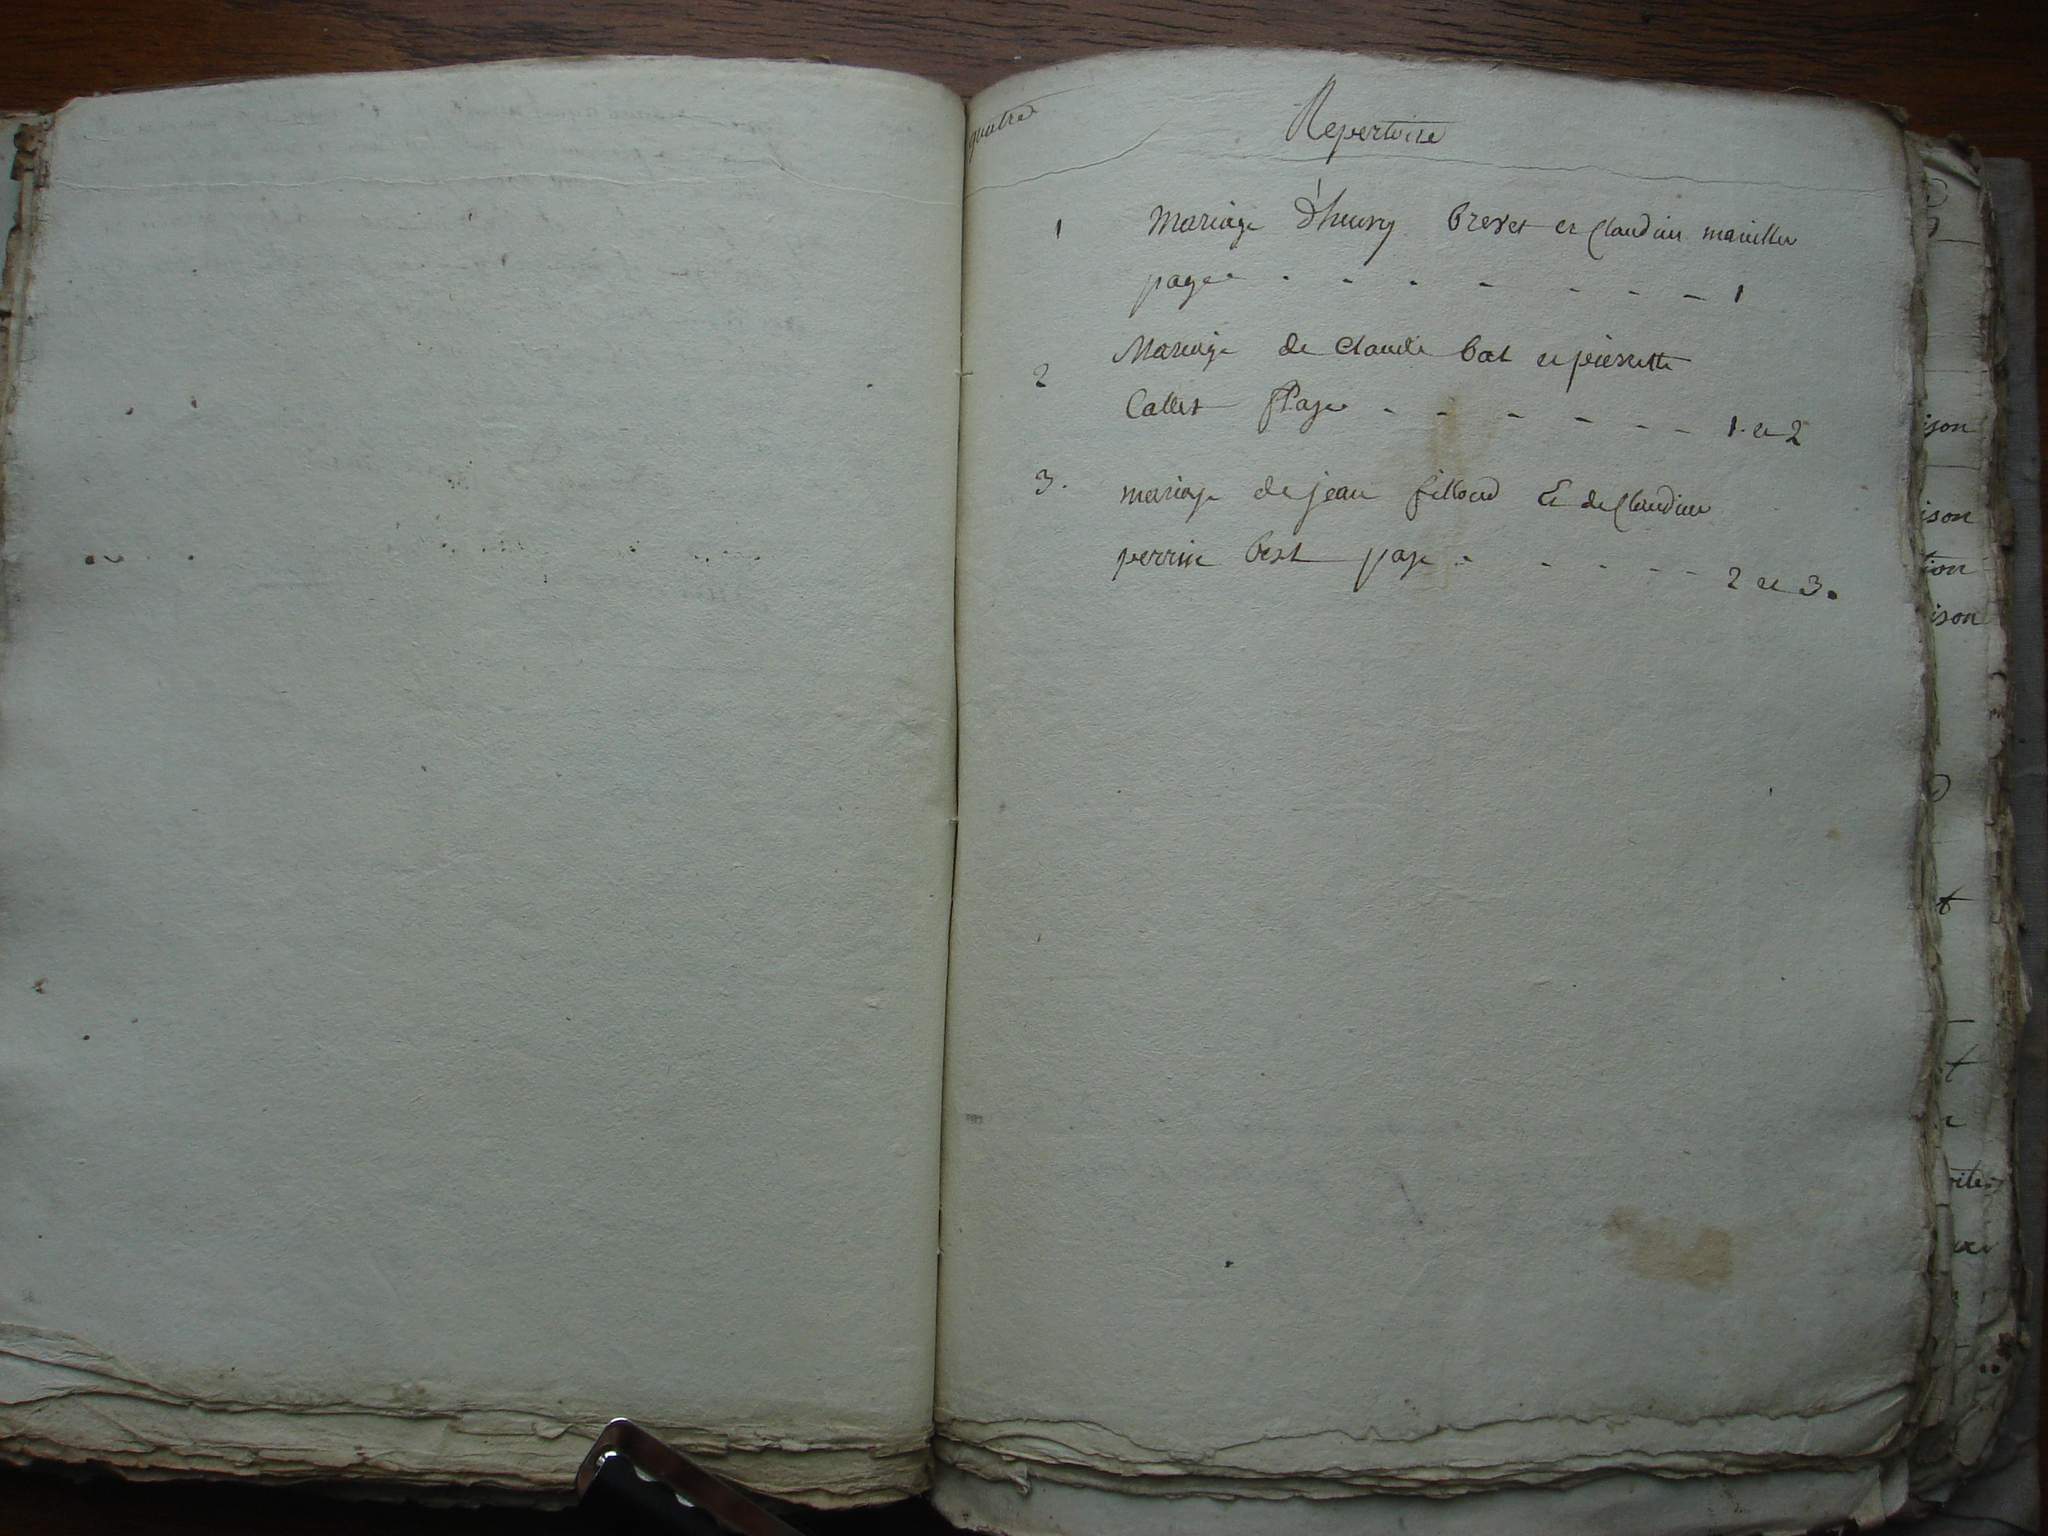 quatre
Repertoire
1 Mariage d'henry brevet et Claudine
page - - - - - - - 1
2 Mariage de Claude bat et pierrette
Callet Page - - - - - - 1 et 2
3. mariage de jean filloud Et de Claudine
perrine page - - - - - 2 et 3.
ison
ison
tion
ison